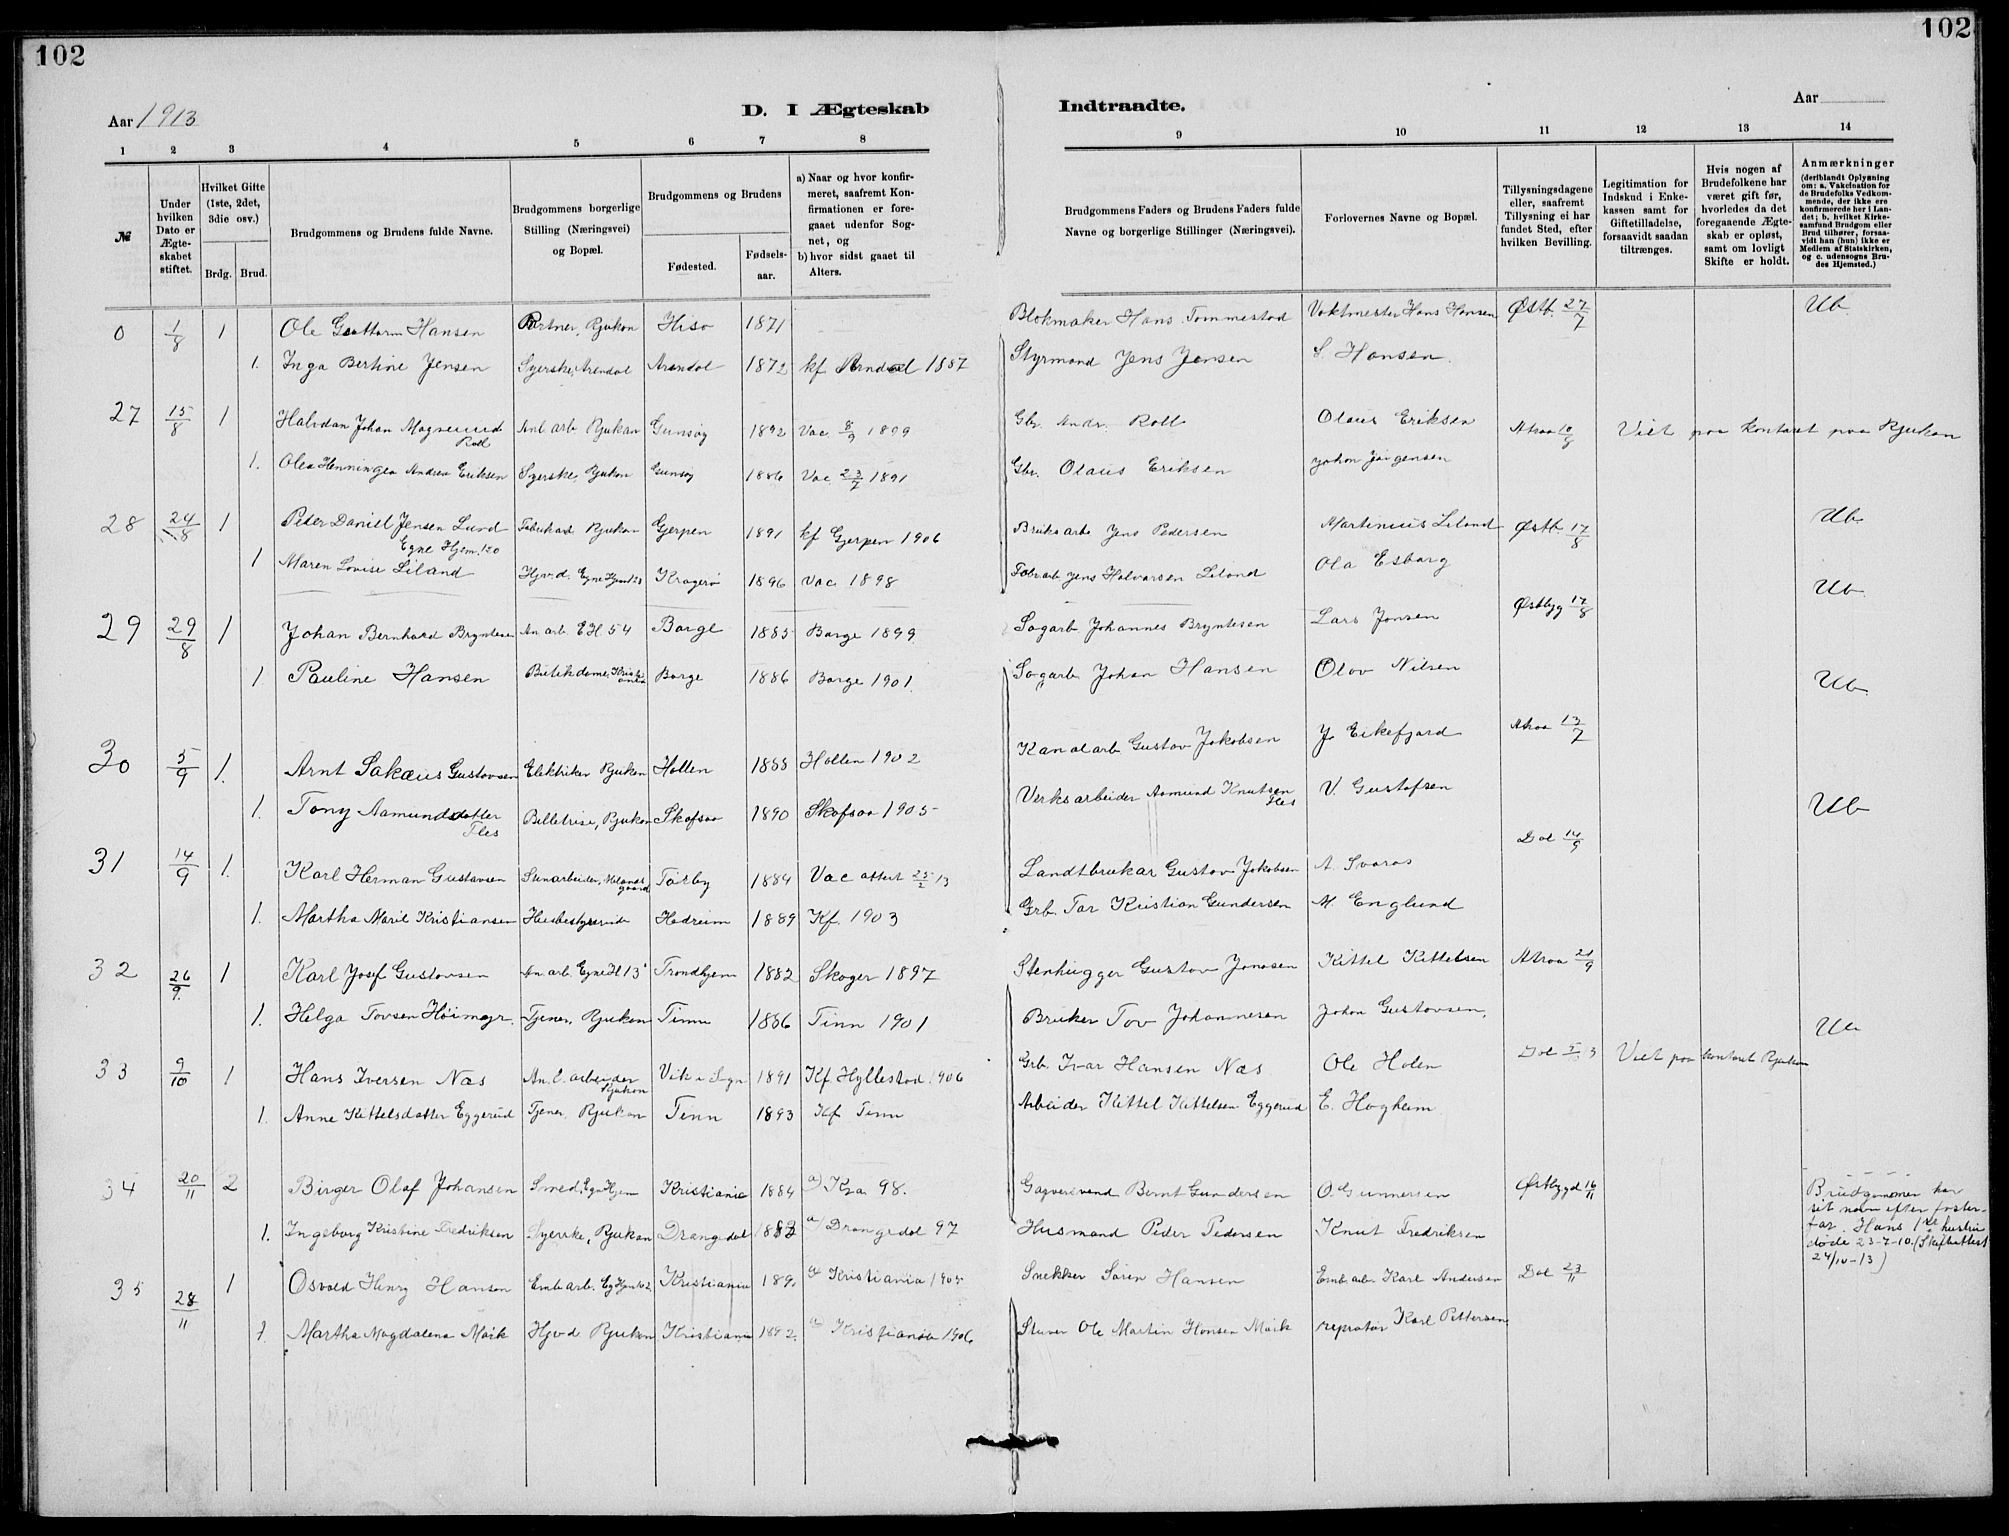 102
102
Aar 1913
D. I Ægteskab
Indtraadte.
Aar
1 2 3 4 5 6 7 8 9 10 11 12 13 14
№
Under hvilken Dato er Ægteskabet stiftet.
Hvilket Gifte (1ste, 2det, 3die osv.)
Brdg. Brud.
Brudgommens og Brudens fulde Navne.
Brudgommens borgerlige Stilling (Næringsvei) og Bopæl.
Brudgommens og Brudens
Fødested.
Fødselsaar.
a) Naar og hvor konfirmeret, saafremt Konfirmationen er foregaaet udenfor Sognet, og
b) hvor sidst gaaet til Alters.
Brudgommens Faders og Brudens Faders fulde Navne og borgerlige Stillinger (Næringsvei).
Forlovernes Navne og Bopæl.
Tillysningsdagene eller, saafremt Tillysning ei har fundet Sted, efter hvilken Bevilling.
Legitimation for Indskud i Enkekassen samt for Giftetilladelse, forsaavidt saadan tiltrænges.
Hvis nogen af Brudefolkene har været gift før, hvorledes da det foregaaende Ægteskab er opløst, samt om lovligt Skifte er holdt.
Anmærkninger (deriblandt Oplysning om: a. Vakcination for de Brudefolks Vedkommende, der ikke ere konfirmerede her i Landet; b. hvilket Kirkesamfund Brudgom eller Brud tilhører, forsaavidt han (hun) ikke er Medlem af Statskirken, og c. udensogns Brudes Hjemsted.)
0 1/8 1 Ole Guttorm Hansen Portner, Rjukan Hiso 1871 Blokmaker Hans Tommestad Vaktmester Hans Hansen Østb. 27/7 Ub
1. Inga Bertine Jensen Syerske, Arendal Arendal 1872 kf Arndal 1887 Styrmand Jens Jensen S. Hansen.
27 15/8 1 Halvdan Johan Magnuund Roll Anl arb Rjukan Gunsøy 1892 Vac. 8/9 1899 Gbr. Andr. Roll Olaus Eriksen Atraa 10/8 Viet paa kontoret paa Rjukan
1. Olea Henningea Andrea Eriksen Syerske, Rjukan Gunsøy 1886 Vac. 23/7 1891 Gbr. Olaus Eriksen Johan Jørgensen
28 24/8 1 Peder Daniel Jensen Lund Egne Hjem 120 Fabrikarb Rjukan Gjerpen 1891 kf Gjerpen 1906 Bruksarb Jens Pedersen Martinius Liland Østb. 17/8 Ub
1 Maren Lovise Liland Hjvd. Egne Hjem 120 Kragerø 1896 Vac 1898 Fabrarb Jens Halvorsen Liland Ola Esborg Ub
29 29/8 1 Johan Bernhard Bryntesen An arb. EH 54 Borge 1885 Borge 1899 Sagarb Johannes Bryntesen Lars Jonsen Østbyg 17/8
1 Pauline Hansen Butikdame, Kristiania Borge 1886 Borge 1901. Sagarb Johan Hansen Olav Nilsen Ub
30 5/9 1. Arnt Sakæus Gustavsen Elektriker Rjukan Holten 1885 Holten 1902 Kanalarb Gustav Jakobsen J. Eikefjord Atraa 13/7
1. Tony Aamundsdatter Fles Billetrise, Rjukan Skafsaa 1890 Skafsaa 1905 Verksarbeider Aamund Knutsen Fles V. Gustafsen Ub
31 14/9 1. Karl Herman Gustavsen Fårby 1884 Vac attest 25/2 13 Landtbrukar Gustav Jakobsen A. Svaras Dal 14/9
1. Martha Marie Kristiansen Husbestyrerinde Hedreim 1889 Kf. 1903 Grb. Tar Kristian Gundersen M. Englund
32 26/9. 1 Karl Josef Gustavsen An. arb. Egne H 13 Trondhjem 1882 Skoger 1897 Stenhugger Gustav Jonasen Kittel Kittelsen Atraa 21/9
1. Helga Tovsen Høimyr. Tjener, Rjukan Tinn 1886 Tinn 1901 Bruker Tov Johannesen Johan Gustavsen, Ub
33 9/10 1 Hans Iversen Næs An. l. arbeider Rjukan Vik i Sogn 1891 Kf. Hyllestad 1906 Grb. Ivar Hansen Næs Ole Holen Viet paa kontoret Rjukan
1. Anne Kittelsdatter Eggerud Tjener, Rjukan Tinn 1893 Kf Tinn Arbeider Kittel Kittelsen Eggerud E. Hogheim
34 20/11 2 Birger Olaf Johansen Smed, Egn Hjem Kristiania 1884 a) Kra 98. Gagversvend Bernt Gundersen O. Gunnersen Østbygd 16/11 Brudgommen har sit navn efter fosterfar. Hans 1ste hustru døde 23-7-10. (Skifteattest 24/10-13)
1. Ingeborg Kristine Fredriksen Syerske, Rjukan Drangedal 1883 a) Drangedal 97 Husmand Peder Pedersen Knut Fredriksen
35 28/11 1 Osvald Henry Hansen Emb arb. Eg Hjem 62 Kristiania 189 a) Kristiania 1905 Snekker Søren Hansen Emb arb Karl Andersen Dal 23/11
1. Martha Magdalena Mørk Hjvd Rjukan Kristiania 1892. a) Kristiania 1906 Stuver Ole Martin Hansen Mørk reprotør Karl Pettersen